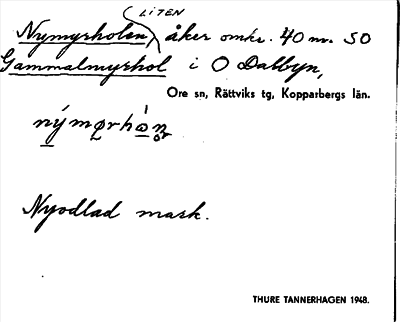 LITEN
Nymyrholen, åker omkr. 40 m. SO
Gammalmyrhol i O Dalbyn,
Ore sn, Rättviks tg, Kopparbergs län.
Nyodlad mark.
THURE TANNERHAGEN 1948.